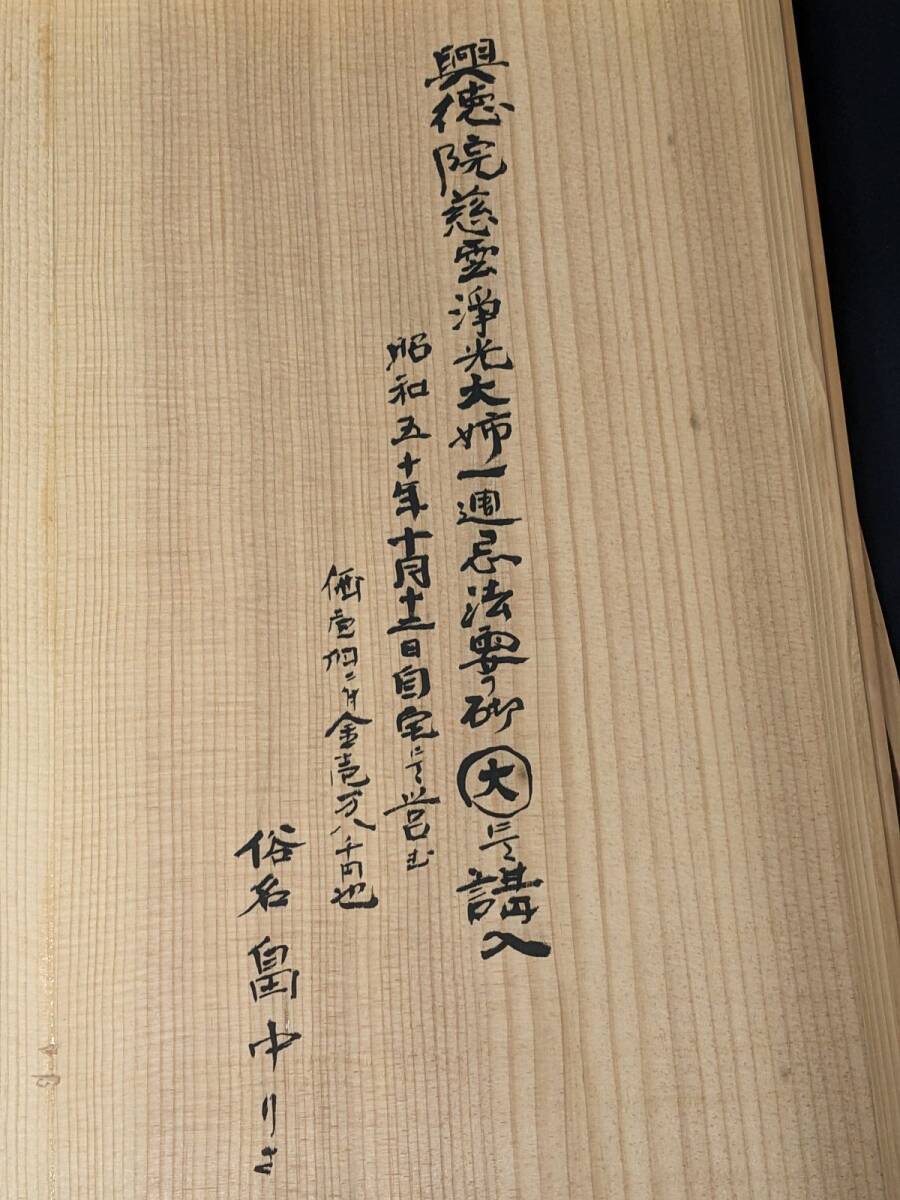 興徳院慈雲浄光大姉一週忌法要の砌 大 にて講入
昭和五十年十月十三日自宅にて営む
価壱個ニ付金壱万八千円也
俗名 畠中りさ